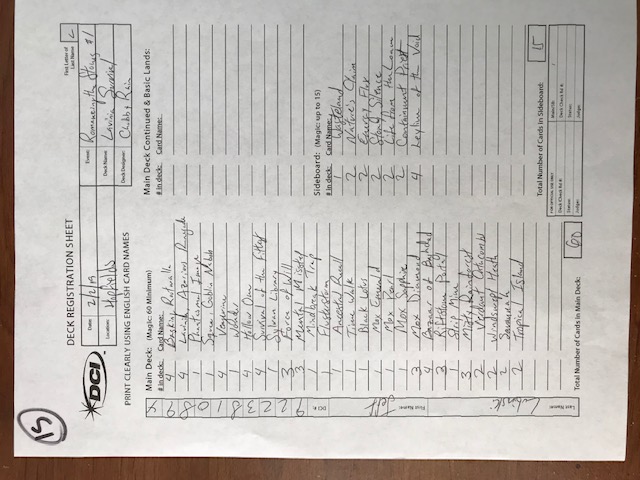 15
DCI
DECK REGISTRATION SHEET
First Letter of
Last Name: L
Date: 2/2/19
Event: Romancing the Stones #1
Location: Hopfields
Deck Name: Lavinia Survival
Deck Designer: Chubby Rain
PRINT CLEARLY USING ENGLISH CARD NAMES
Main Deck: (Magic: 60 Minimum)
# in deck: Card Name:
4 Basking Rootwalla
4 Lavinia, Azorius Renegade
1 Phantasmal Image
1 Squee, Goblin Nabob
4 Vengevine
1 Wonder
4 Hollow One
4 Survival of the Fittest
1 Sylvan Library
3 Force of Will
3 Mental Misstep
1 Mindbreak Trap
1 Flusterstorm
1 Ancestral Recall
1 Time Walk
1 Black Lotus
1 Mox Emerald
1 Mox Pearl
1 Mox Sapphire
3 Mox Diamond
4 Bazaar of Baghdad
3 Riftstone Portal
1 Strip Mine
3 Misty Rainforest
2 Verdant Catacombs
2 Windswept Heath
2 Savannah
2 Tropical Island
Total Number of Cards in Main Deck: 60
Main Deck Continued & Basic Lands:
# in deck: Card Name:
Sideboard: (Magic: up to 15)
# in deck: Card Name:
1 Wasteland
2 Nature's Claim
2 Energy Flux
2 Stony Silence
2 Life from the Loam
2 Containment Priest
4 Leyline of the Void
Total Number of Cards in Sideboard: 15
FOR OFFICIAL USE ONLY
Main/SB: /
Deck Check Rd #:
Deck Check Rd #:
Status:
Status:
Judge:
Judge:
Last Name: Lubinski
First Name: Jeff
DCI #: 9223810894